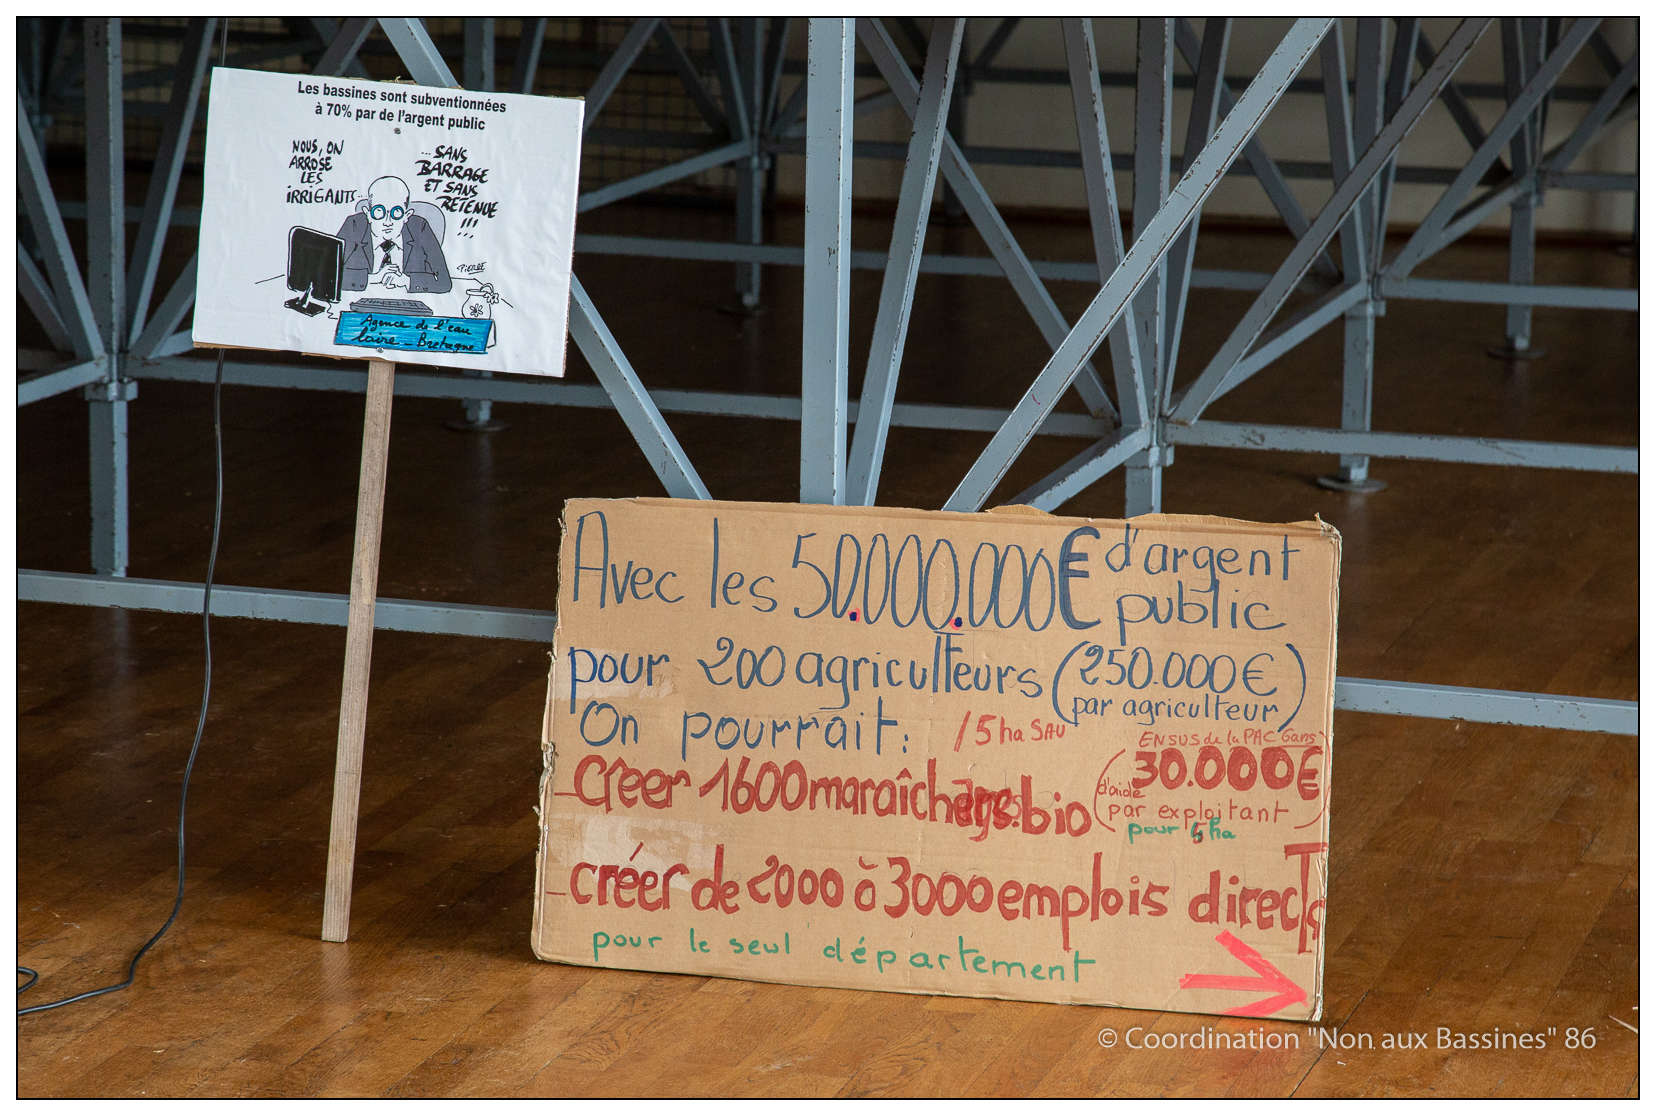 Les bassines sont subventionnées
à 70% par de l'argent public
NOUS, ON
ARROSE
LES
IRRIGANTS...
...SANS
BARRAGE
ET SANS
RETENUE
!!!
...
PIERRE
Agence de l'eau
Loire - Bretagne
Avec les 50.000.000€ d'argent
public
pour 200 agriculteurs (250.000€
par agriculteur)
On pourrait:
/5ha SAU
EN SUS de la PAC 6ans
- Créer 1600 maraîchers bio
(30.000€
d'aide
par exploitant)
pour 5 ha
- créer de 2000 à 3000 emplois directs
pour le seul département
© Coordination "Non aux Bassines" 86